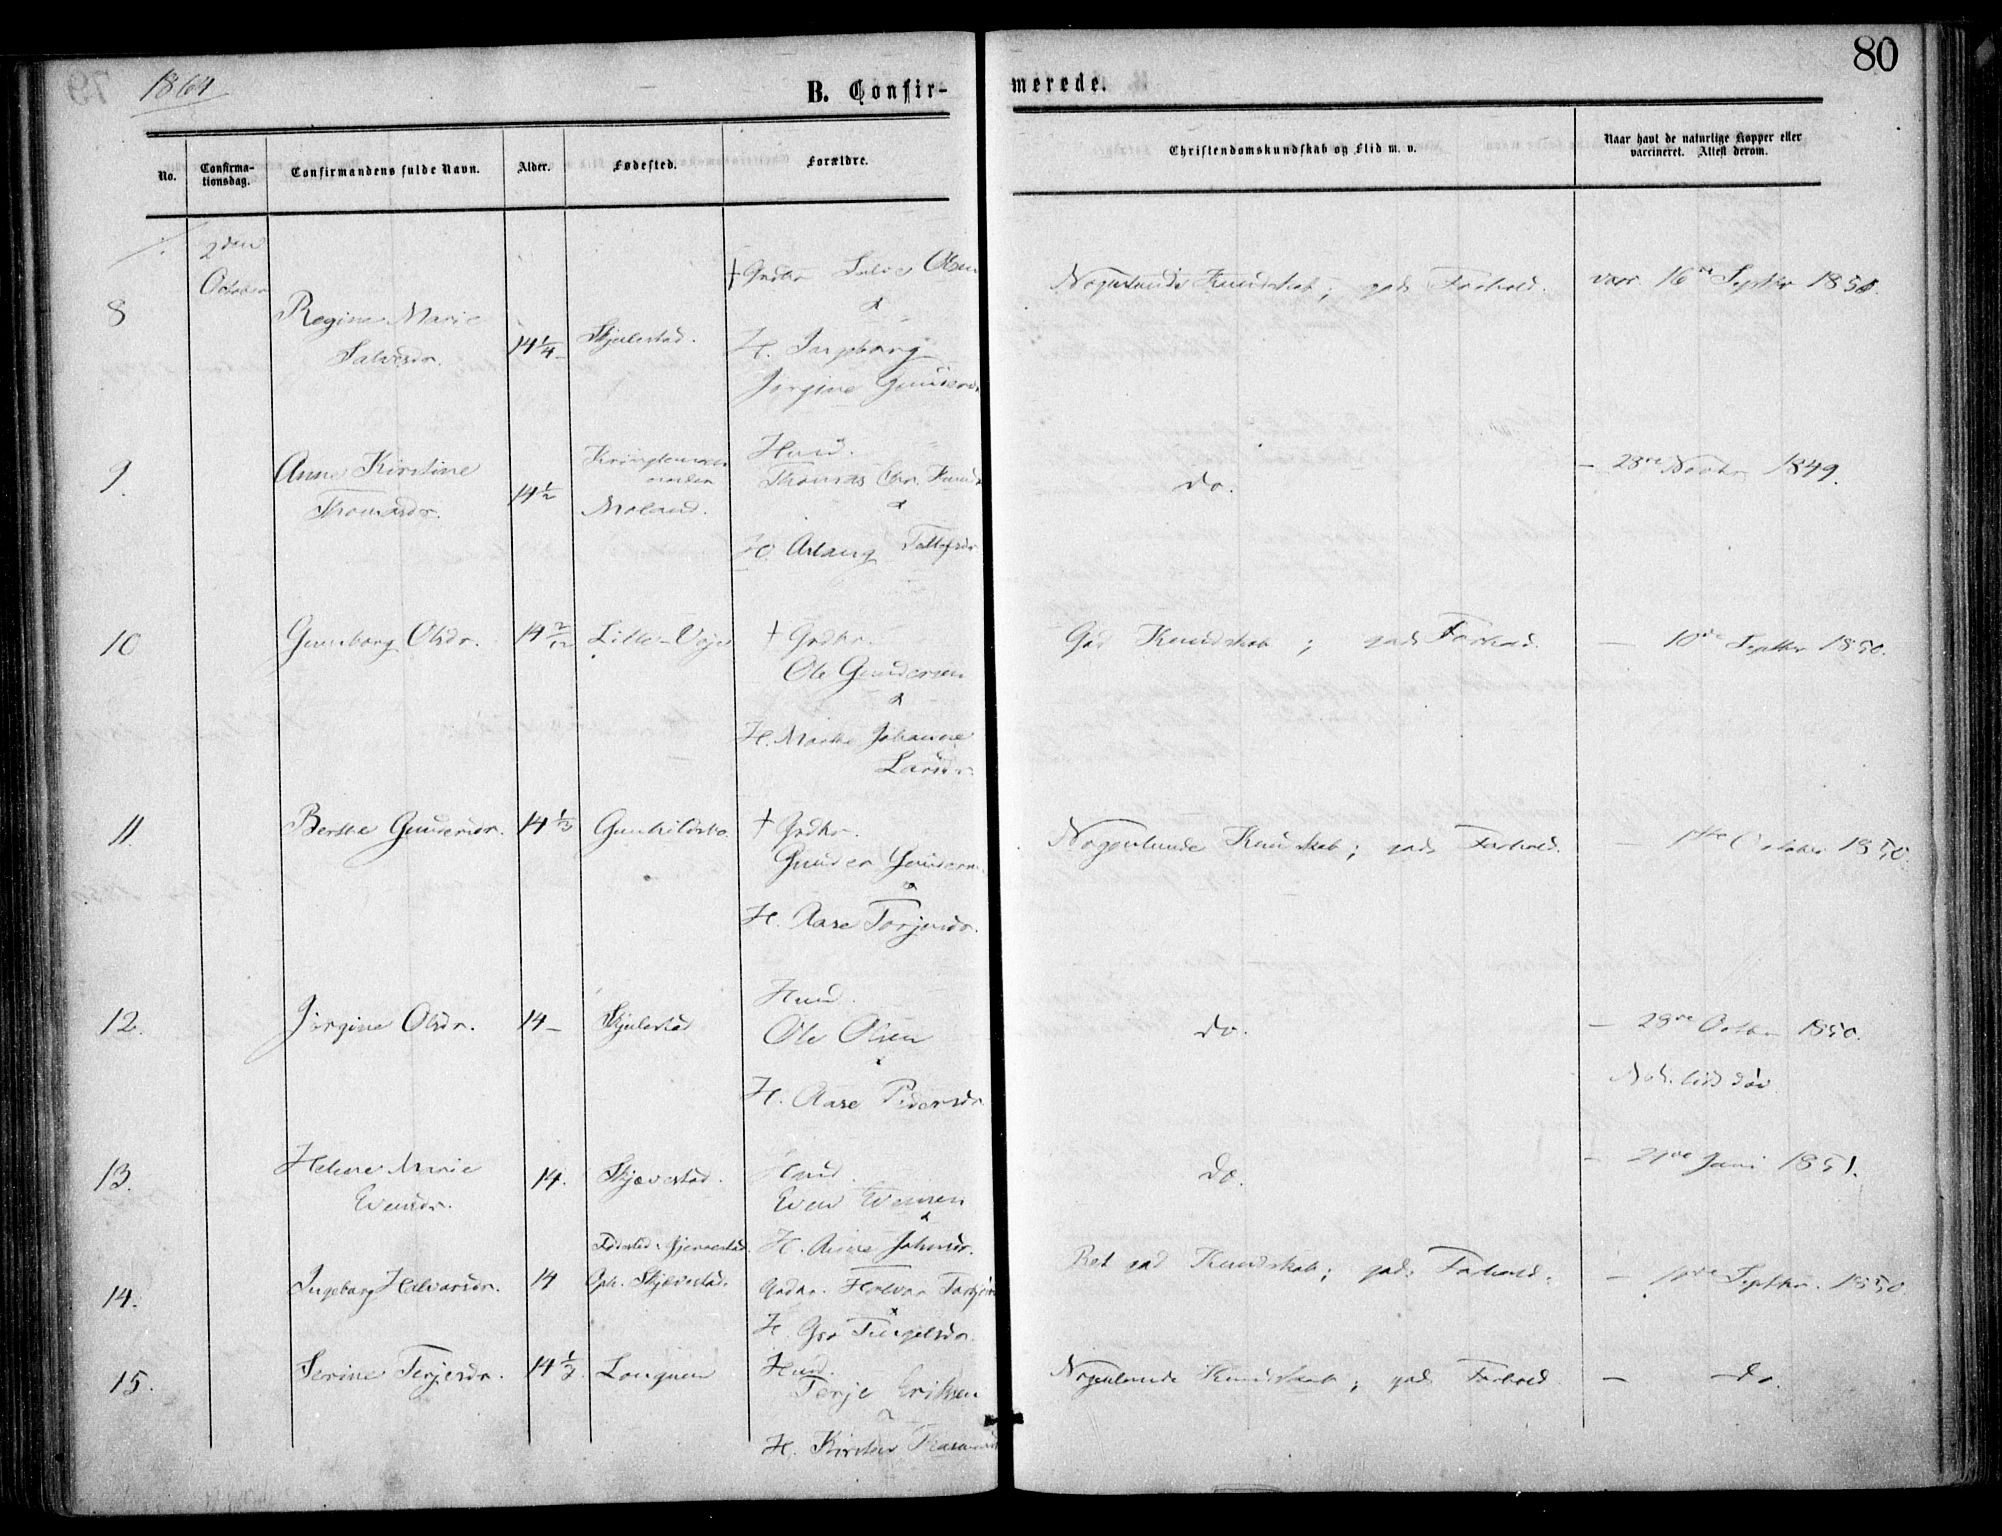 80
1864
B. Confir-
merede.
No.
Confirma-
tionsdag.
Confirmandens fulde Navn.
Alder.
Fødested.
Forældre.
Christendomskundskab og Flid m. v.
Naar havt de naturlige Kopper eller
vaccineret. Attest derom.
2den
October
8
Regine Marie
Salvesdr.
14 1/4
Skjulestad.
† Grdbr. Salve Olsen
&
H. Ingeborg
Jørgine
Nogenlunde Kundskab; god Forhold.
vacc. 16de Septbr 1850.
9.
Anne Kirstine
Thomasdr.
14 1/2
Moland.
Husd.
Thomas Chr.
&
H. Aslaug Tellefsdr.
do.
— 28de Novbr 1849.
10
Gunborg Olsdr.
14 2/12
Lille-Veje
† Grdbr.
Ole Gundersen
&
H. Marthe Johanne
Larsdr.
God Kundskab; god Forhold.
— 10de Septbr 1850.
11.
Berthe Gundersdr.
14 1/3
Gunhildsbo.
† Grdbr.
Gunder Gundersen
&
H. Aase Terjesdr.
Nogenlunde Kundskab; god Forhold.
— October 1850.
12.
Jørgine Olsdr.
14 —
Skjulestad
Husd.
Ole Olsen
&
H. Aase Pedersdr.
do.
— 28de Octbr 1850.
Not. lidt døv
13.
Helene Marie
Evensdr.
14.
Skjævestad.
Husd.
Even Evensen
&
H. Anne Johnsdr.
do.
— Juni 1851.
14.
Ingeborg Halvorsdr.
14
Fødested: Gjerrestad.
Oph. Skjævestad.
Grdbr. Halvor
&
H. Gro
Ret god Kundskab; god Forhold.
— Septbr. 1850.
15.
Serine Terjesdr.
14 1/3
Longum
Husd.
Terje Eriksen
&
H. Kirsten
Nogenlunde Kundskab; god Forhold.
— do.